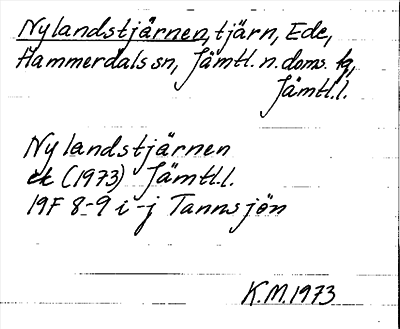 Nylandstjärnen, tjärn, Ede,
Hammerdals sn, Jämtl. n. doms. tg,
Jämtl.l.
Nylandstjärnen
ek (1973) Jämtl.l.
19F 8-9 i-j Tannsjön
K.M. 1973